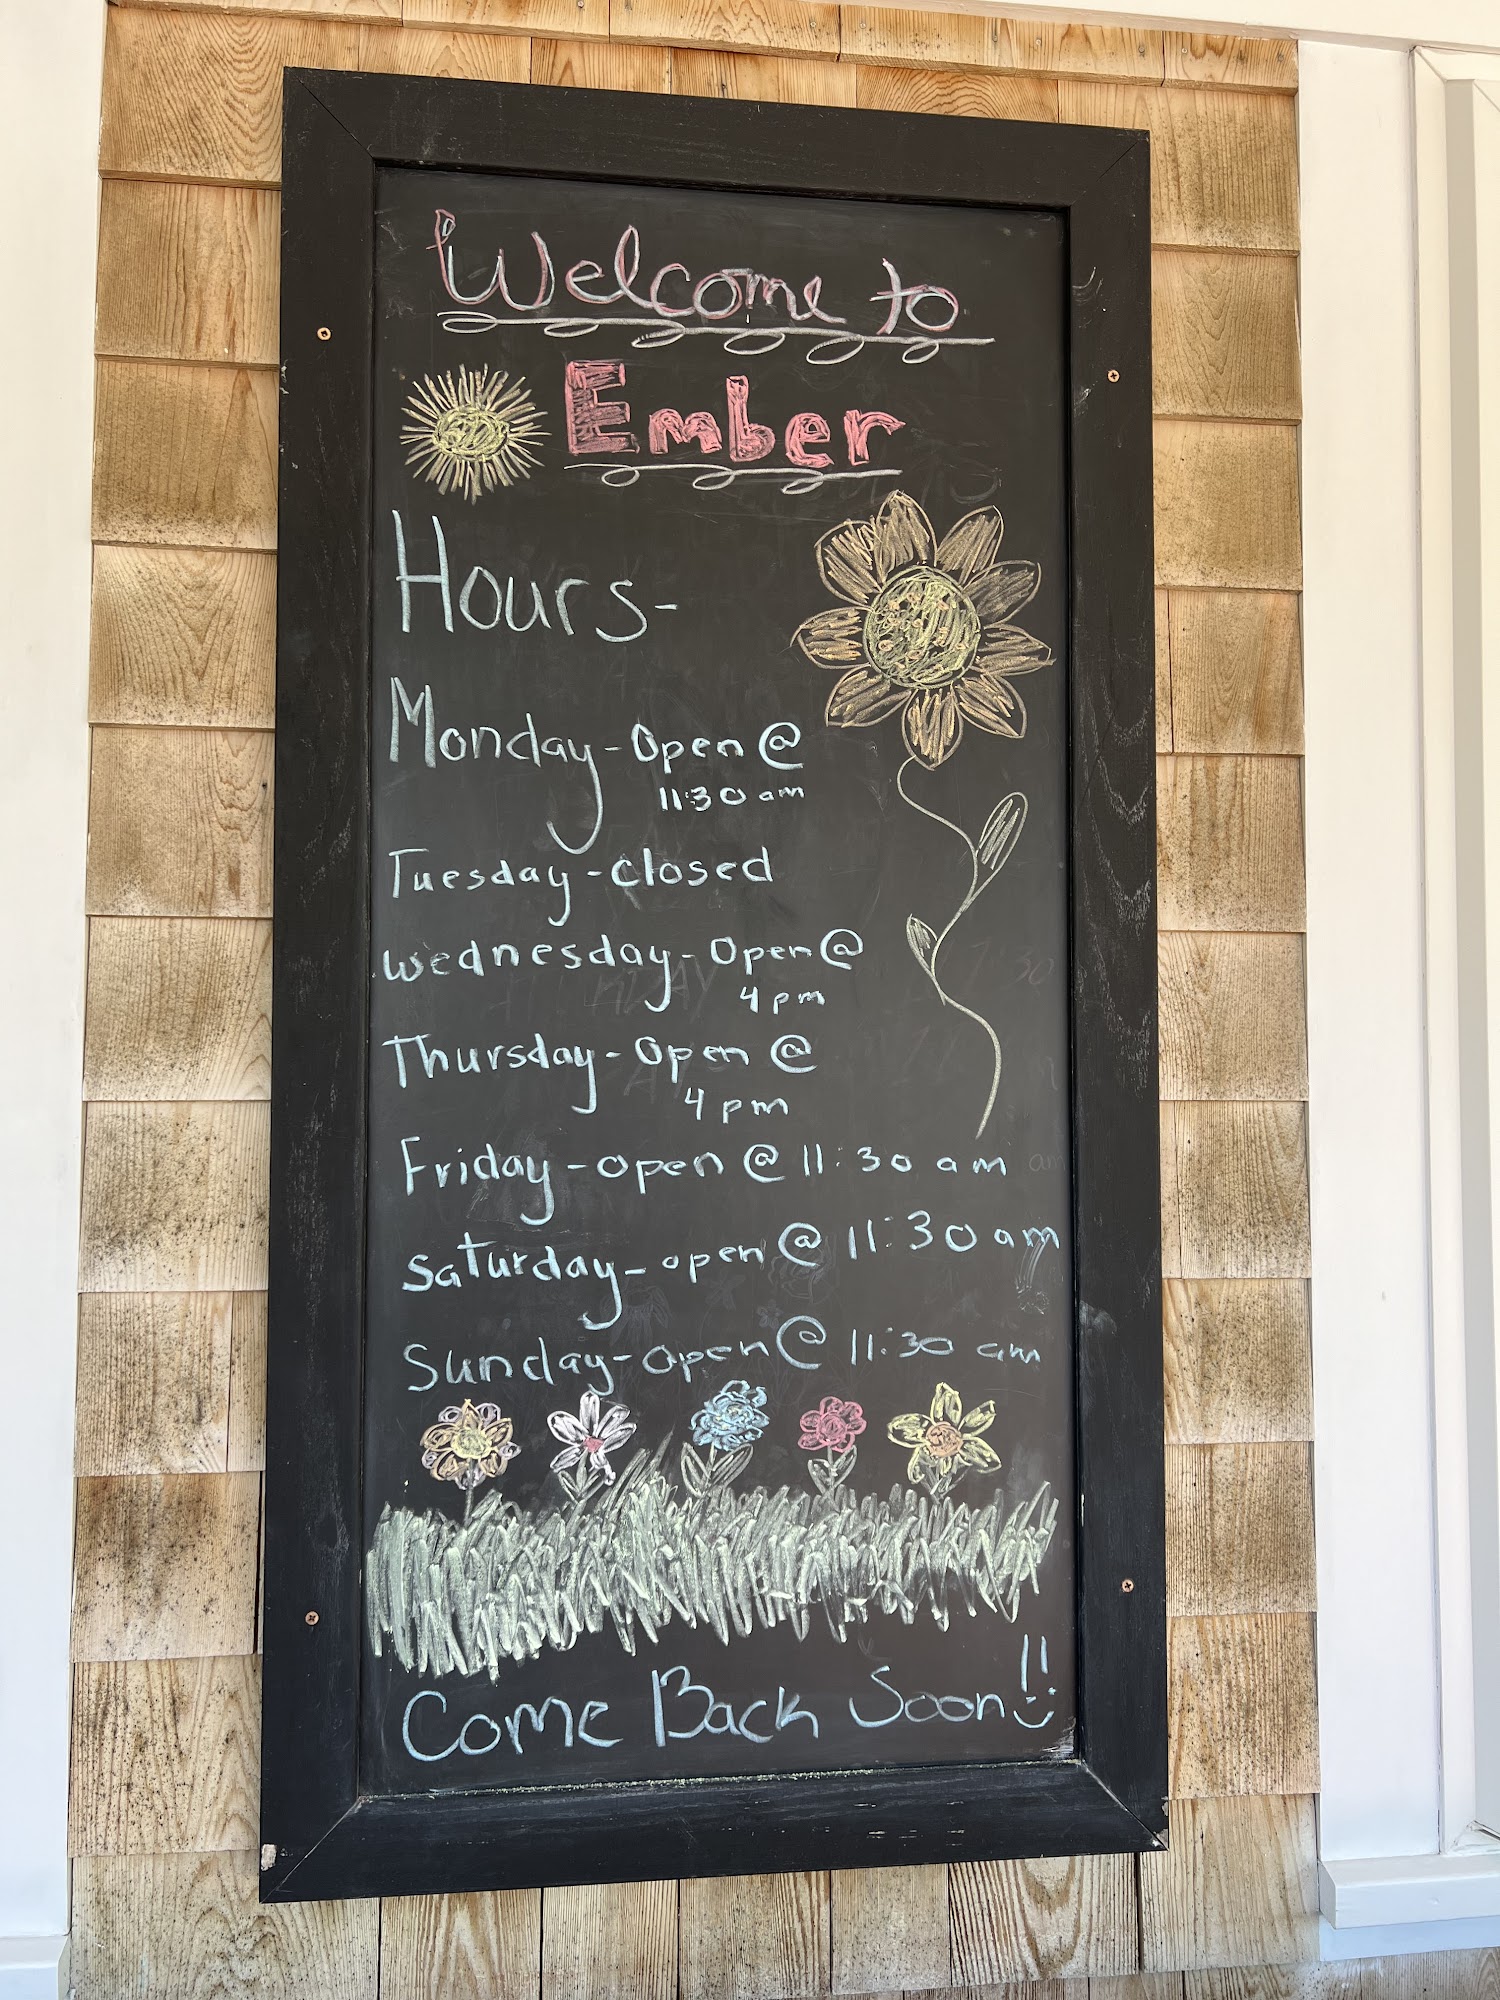 Welcome to
Ember
Hours-
Monday-Open @
11:30 am
Tuesday-closed
Wednesday-Open @
4 pm
Thursday-Open @
4 pm
Friday-open @ 11:30 am
Saturday-open @ 11:30 am
Sunday-Open @ 11:30 am
Come Back Soon!!